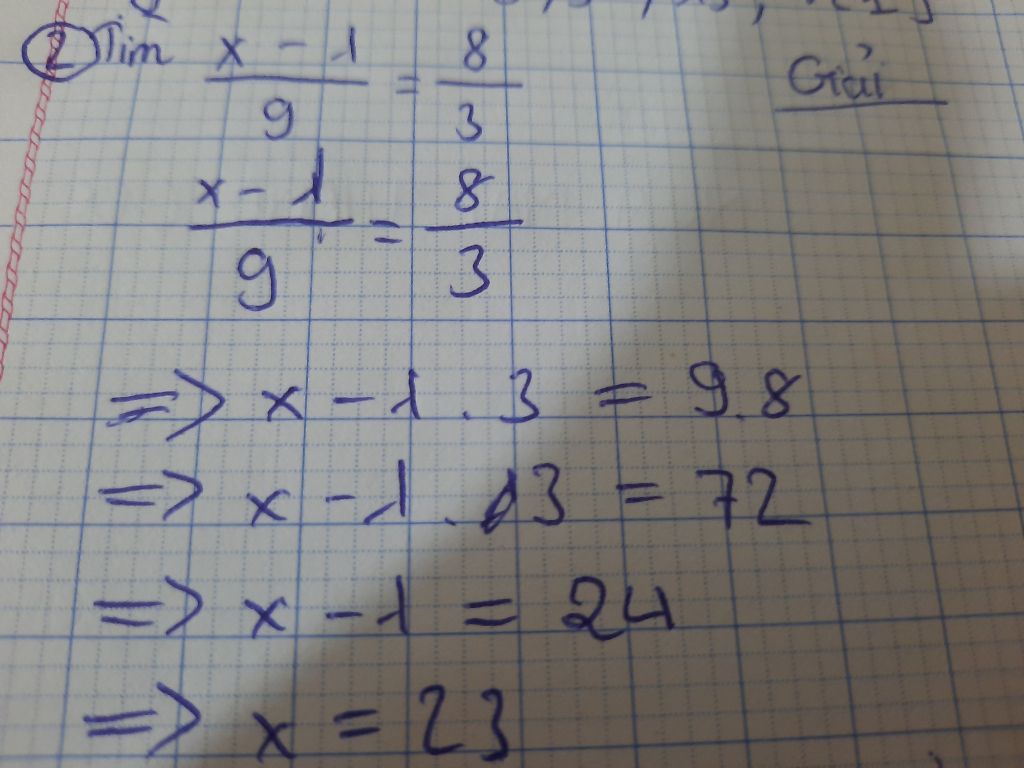 ② Tìm x - 1 / 9 = 8 / 3
Giải
x - 1 / 9 = 8 / 3
=> x - 1 . 3 = 9.8
=> x - 1 . 3 = 72
=> x - 1 = 24
=> x = 23